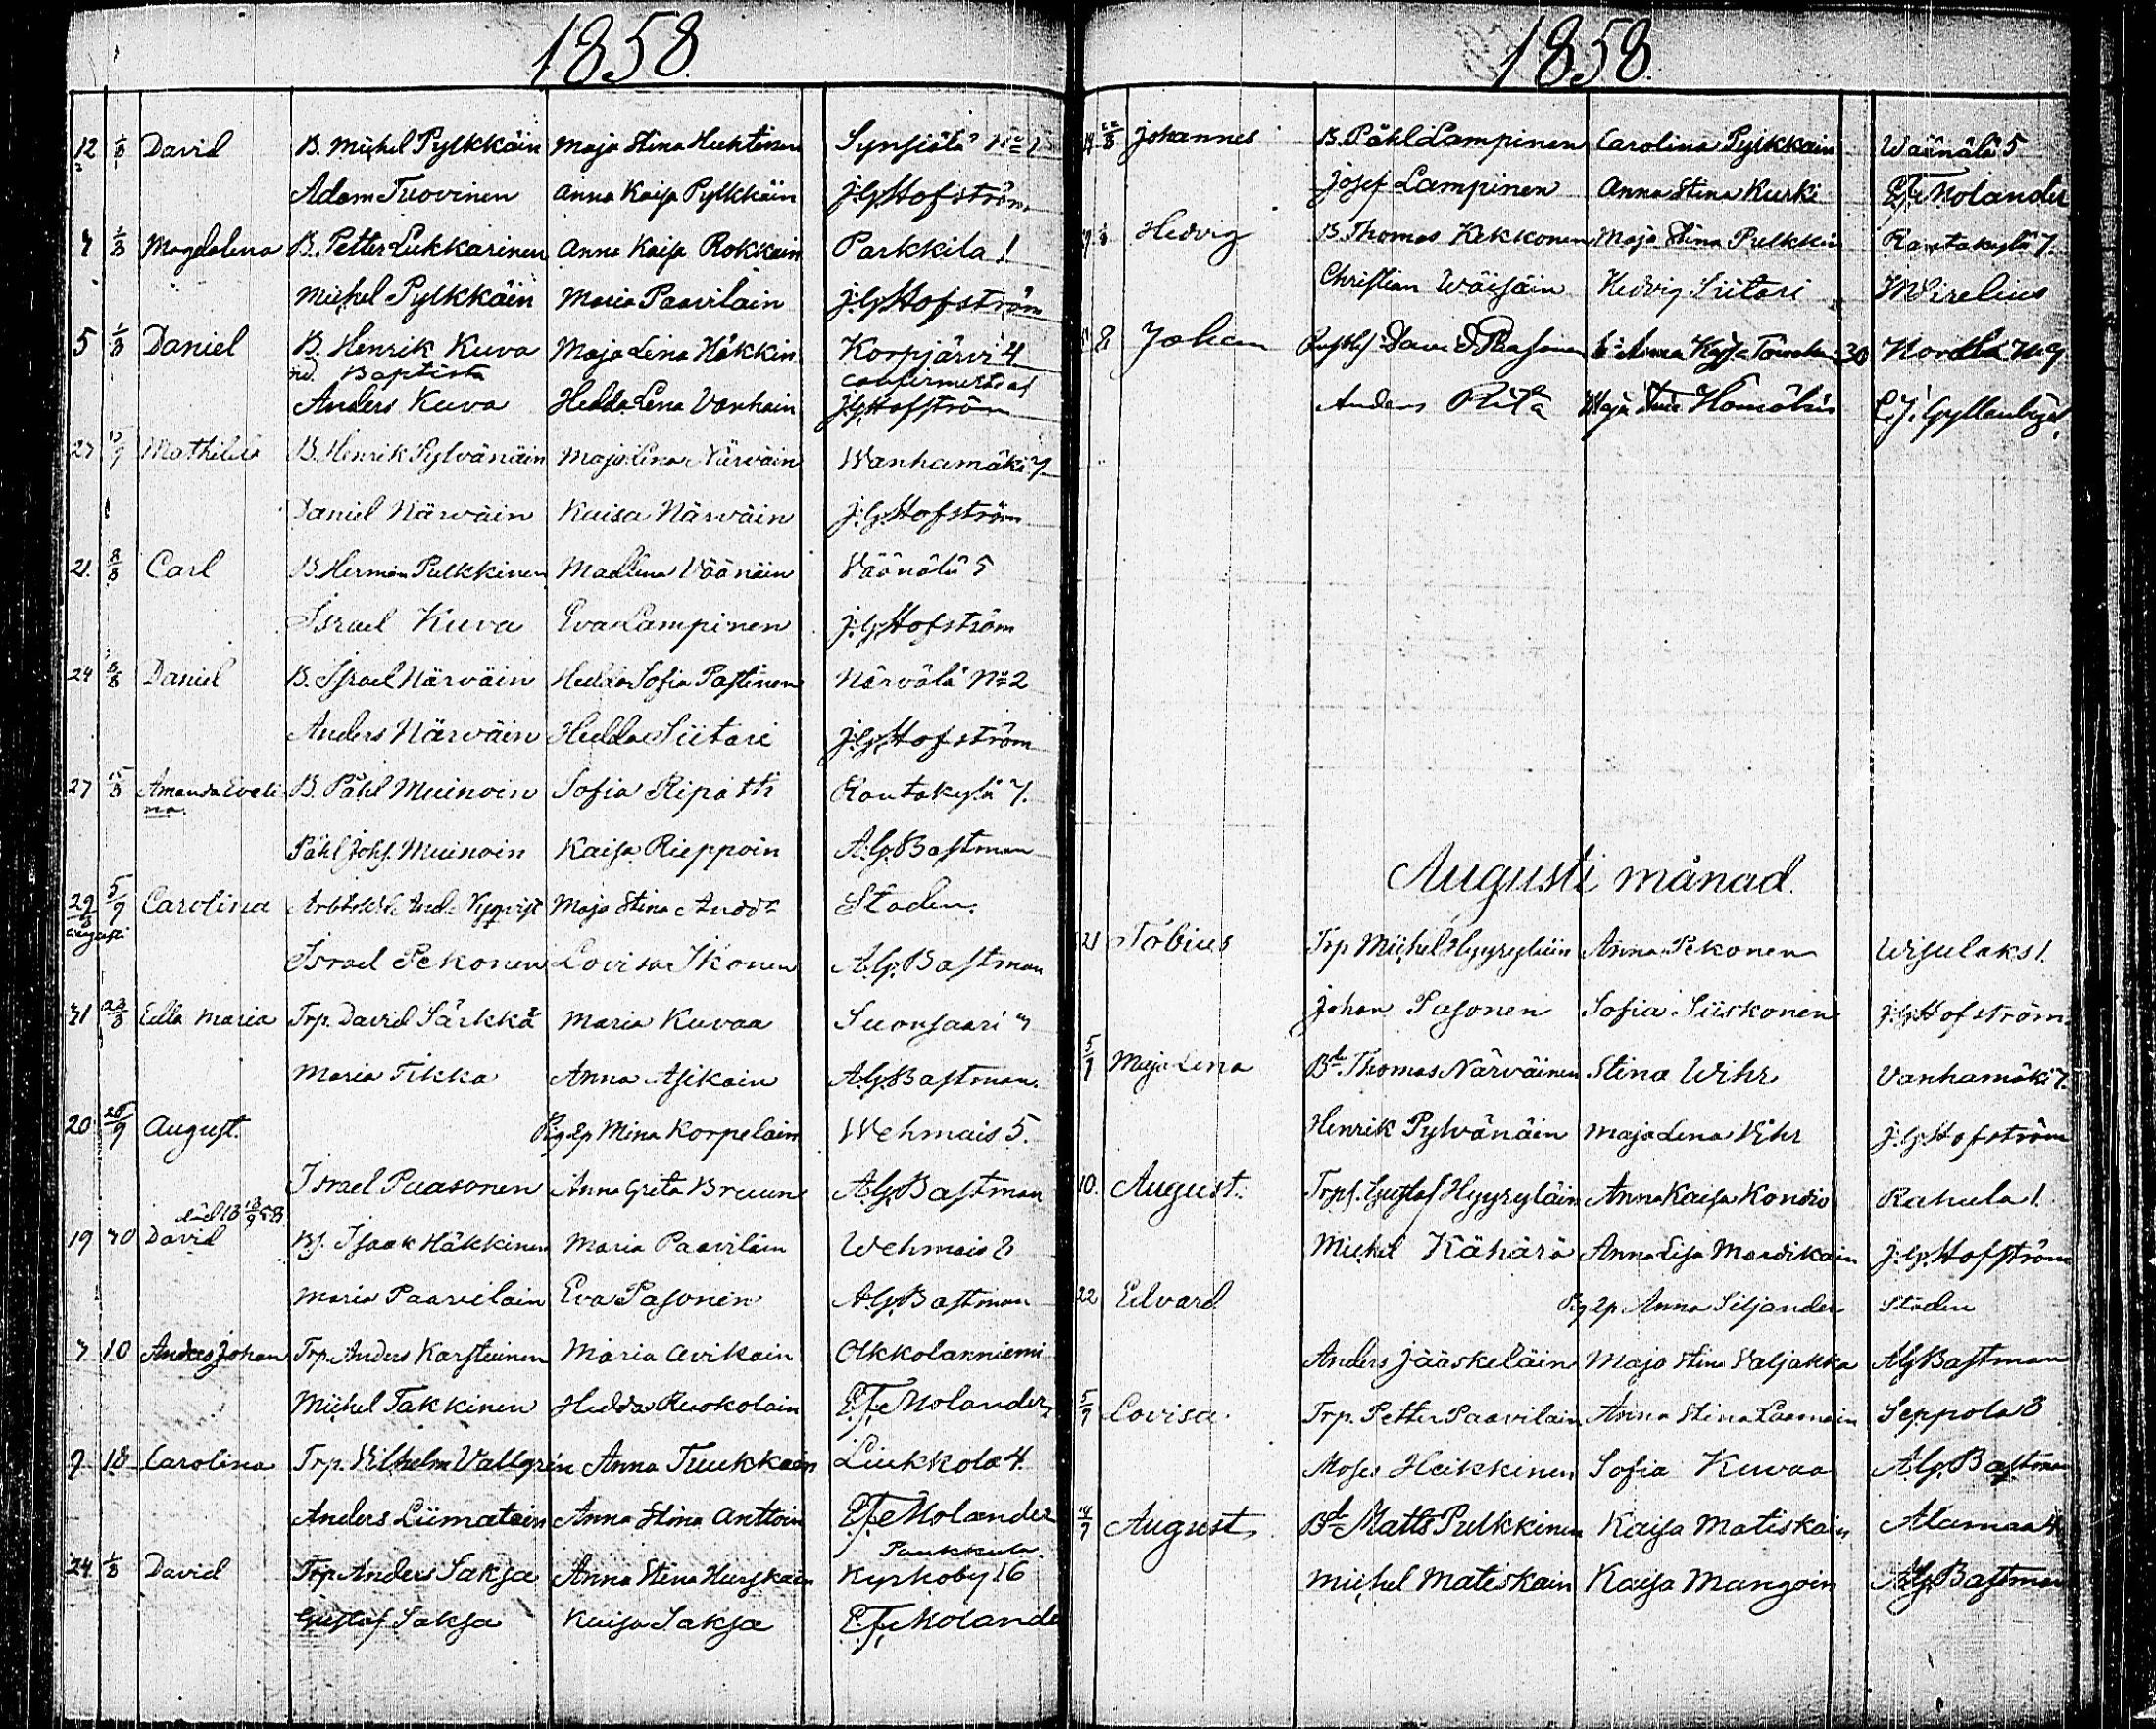 1858.
12 1/8 David B. Michel Pylkkäin Maja Stina Huhtinen Synsiötä No 2
Adam Tuovinen Anna Kaisa Pylkkäin J.G. Hofström
7 1/8 Magdalena B. Petter Lukkarinen Anna Kaisa Rokkain Parkkila 1
Michel Pylkkäin Maria Paavilain J.G. Hofström
5 1/8 Daniel B. Henrik Kuva Maja Lena Häkkin Korpjärvi 4
nd. Baptista confirmerad af
Anders Kuva Hedda Lena Vanhain J.G. Hofström
Mathilda B. Henrik Pylvänäin Maja Lena Närväin Wanhamäki 7
Daniel Närväin Kaisa Närväin J.G. Hofström
21. 8/8 Carl B. Herman Pulkkinen Madlena Väänäin Väänälä 5
Israel Kuva Eva Lampinen J.G. Hofström
24 8/8 Daniel B. Israel Närväin Hedda Sofia Pastinen Närvälä No 2
Anders Närväin Hedda Siitari J.G. Hofström
27 15/8 Amanda Eveli B. Påhl Muinoin Sofia Ripatti Rantakylä 7.
na.
Påhl Johs. Muinoin Kaisa Rieppoin A.G. Bastman
29 5/9 Carolina And. Nyqvist Maja Stina Staden.
augusti
Israel Pekonen Lovisa Ikonen A.G. Bastman
31 22/8 Ella Maria Trp. David Särkkä Maria Kuvaa Suonsaari
Maria Tikka Anna Asikain A.G. Bastman
20 26/9 August. Pig. Mina Korpelain Wehmais 5.
Israel Paasonen Anna Greta Bruun A.G. Bastman
död 13 13/9 58
19 30 David Bs. Isaak Häkkinen Maria Paavilain Wehmais 2
Maria Paavilain Eva Pasonen A.G. Bastman
7 10 Anders Johan Trp. Anders Karstinen Maria Avikain Olkkolanniemi
Michel Takkinen Hedda Ruokolain E.F. Molander
9 18 Carolina Trp. Vilhelm Vallgrén Anna Tuukkain Liukkola 4.
Anders Liimatain Anna Stina Anttoin E.F. Molander
Paukkula.
24 1/8 David Trp. Anders Saksa Anna Stina Hurskain Kyrkoby 16
Gustaf Saksa Kaisa Saksa E.F. Molande
1858.
22/8 Johannes B. Påhl Lampinen Carolina Pylkkäin Wäänälä 5
Josef Lampinen Anna Stina Kurki E.F. Molander
Hedvig B. Thomas Kekkonen Maja Stina Pulkkin Rantakylä 7.
Christian Wäisäin Hedvig Siitari Sirelius
8 Johan 30
Anders
Augusti månad.
21 Tobius Trp Michel Hyyryläin Anna Pekonen Wisulaks 1.
Johan Pasonen Sofia Siiskonen J.G. Hofström
5/9 Maja Lena Bd. Thomas Närväinen Stina Wihr Vanhamäki 7.
Henrik Pylvänäin Maja Lena Vihr J.G. Hofström
10. August. Trps. Gustaf Hyyryläin Anna Kaisa Kondio Rahula 1.
Michel Kähärä Anna Lisa Mandikain J.G. Hofström
22 Edvard Pig. Anna Siljander Staden
Anders Jääskeläin Maja Stina Valjakka A.G. Bastman
5/9 Lovisa Trp. Petter Paavilain Anna Stina Laamain Seppola 3
Moses Heikkinen Sofia Kuvaa A.G. Bastman
August Bd. Matts Pulkkinen Kaisa Matiskain Alamaa 4
Michel Matiskain Kaisa Mangoin A.G. Bastman